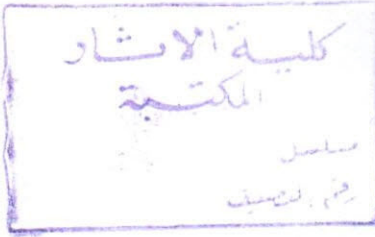 كليـة الاثـار
المكتبـة
مسلسل
رقم التصنيف